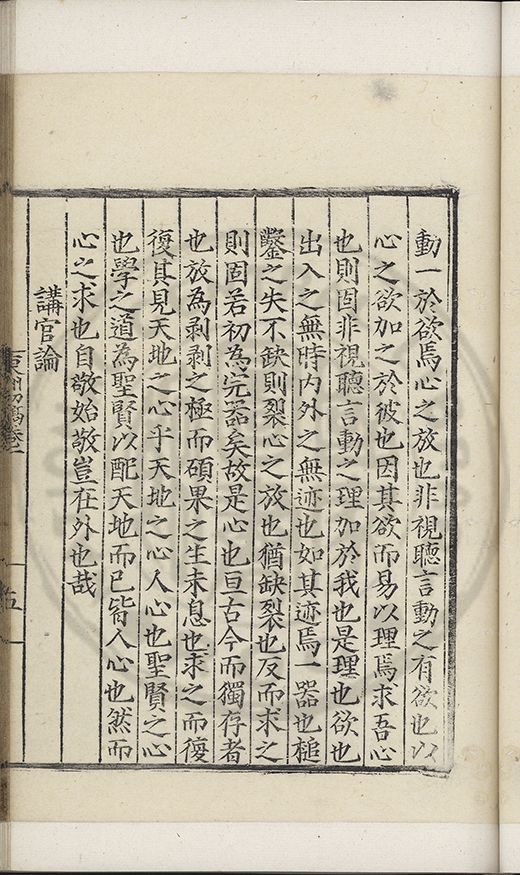 動一於欲焉心之放也非視聽言動之有欲也以
心之欲加之於彼也因其欲而易以理焉求吾心
也則固非視聽言動之理加於我也是理也欲也
出入之無時內外之無迹也如其迹焉一器也槌
鑿之失不缺則裂心之放也猶缺裂也反而求之
則固若初為完器矣故是心也亘古今而獨存者
也放為剥剥之極而碩果之生未息也求之而復
復其見天地之心乎天地之心人心也聖賢之心
也學之道為聖賢以配天地而已皆人心也然而
心之求也自敬始敬豈在外也哉
講官論
東洲初稿卷一
五